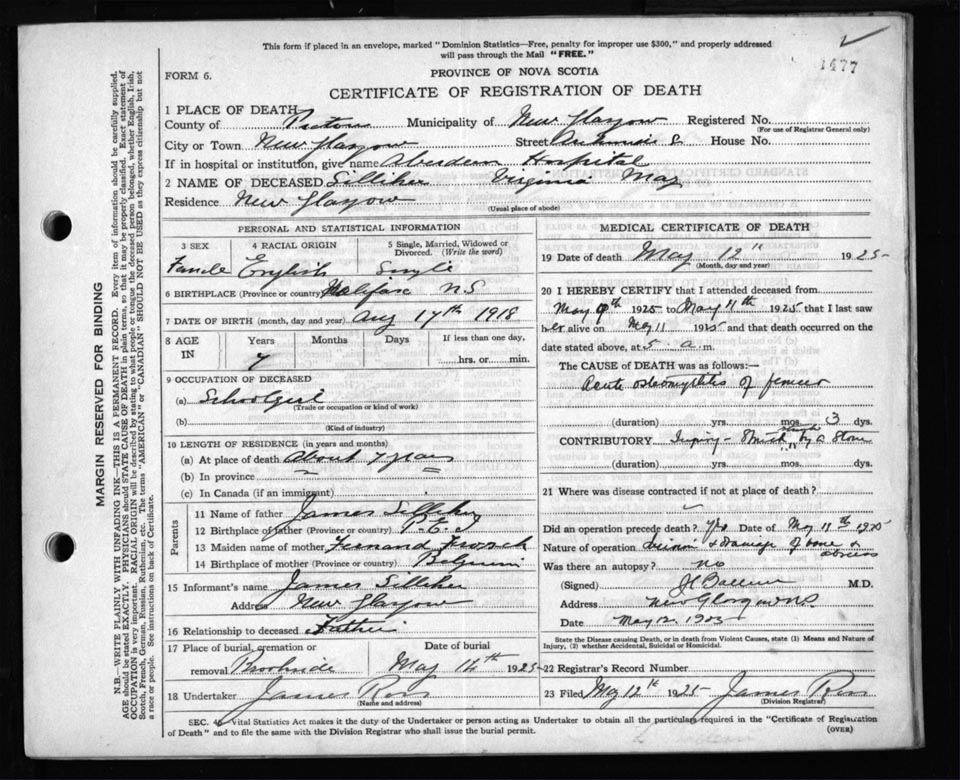 This form if placed in an envelope, marked "Dominion Statistics—Free, penalty for improper use $300," and properly addressed
will pass through the Mail "FREE."
1477
FORM 6.
PROVINCE OF NOVA SCOTIA
CERTIFICATE OF REGISTRATION OF DEATH
1 PLACE OF DEATH
County of Pictou Municipality of New Glasgow Registered No.
(For use of Registrar General only)
City or Town New Glasgow Street House No.
If in hospital or institution, give name Aberdeen Hospital
2 NAME OF DECEASED Silliker Virginia May
Residence New Glasgow
(Usual place of abode)
PERSONAL AND STATISTICAL INFORMATION
3 SEX 4 RACIAL ORIGIN 5 Single, Married, Widowed or
Divorced. (Write the word)
Female English Single
6 BIRTHPLACE (Province or country) Halifax N S
7 DATE OF BIRTH (month, day and year) Aug 17th 1918
8 AGE IN Years Months Days If less than one day,
7 hrs. or min.
9 OCCUPATION OF DECEASED
(a) Schoolgirl
(Trade or occupation or kind of work)
(b)
(Kind of industry)
10 LENGTH OF RESIDENCE (in years and months)
(a) At place of death About 7 years
(b) In province
(c) In Canada (if an immigrant)
Parents
11 Name of father James Silliker
12 Birthplace of father (Province or country) P. E. I
13 Maiden name of mother
14 Birthplace of mother (Province or country) Belguim
15 Informant's name James Silliker
Address New Glasgow
16 Relationship to deceased Father
17 Place of burial, cremation or Date of burial
removal Brookside May 14th 1925
18 Undertaker James Ross
(Name and address)
MEDICAL CERTIFICATE OF DEATH
19 Date of death May 12" 1925
(Month, day and year)
20 I HEREBY CERTIFY that I attended deceased from
May 1925 to May 11th 1925 that I last saw
her alive on May 11 1925 and that death occurred on the
date stated above, at 5 a m.
The CAUSE of DEATH was as follows:—
Acute osteomyelitis of femur
(duration) yrs. mos. 3 dys.
CONTRIBUTORY Injury - Struck by a stone
(duration) yrs. mos. dys.
21 Where was disease contracted if not at place of death?
Did an operation precede death? Yes Date of May 11th 1925
Nature of operation & drainage of bone & abscess
Was there an autopsy? no
(Signed) M.D.
Address New Glasgow N.S.
Date May 12
State the Disease causing Death, or in death from Violent Causes, state (1) Means and Nature of
Injury, (2) whether Accidental, Suicidal or Homicidal.
22 Registrar's Record Number
23 Filed May 12th 1925 James Ross
(Division Registrar)
SEC. Vital Statistics Act makes it the duty of the Undertaker or person acting as Undertaker to obtain all the particulars required in the "Certificate of Registration
of Death" and to file the same with the Division Registrar who shall issue the burial permit.
(OVER)
MARGIN RESERVED FOR BINDING
N.B.—WRITE PLAINLY WITH UNFADING INK—THIS IS A PERMANENT RECORD. Every item of information should be carefully supplied.
AGE should be stated EXACTLY. PHYSICIANS should STATE CAUSE OF DEATH in plain terms, so that it may be properly classified. Exact statement of
OCCUPATION is very important. RACIAL ORIGIN will be described by stating to what people or tongue the deceased person belonged, whether English, Irish,
Scotch, French, German, Russian, Ruthenian, etc. The terms "AMERICAN" or "CANADIAN" SHOULD NOT BE USED as they express citizenship but not
a race or people. See instructions on back of Certificate.